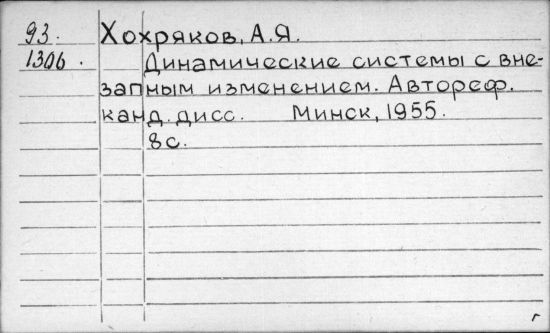 93. Хохряков, А.Я.
1306. Динамические системы с вне-
запным изменением. Автореф.
канд. дисс. Минск, 1955.
8с.
г